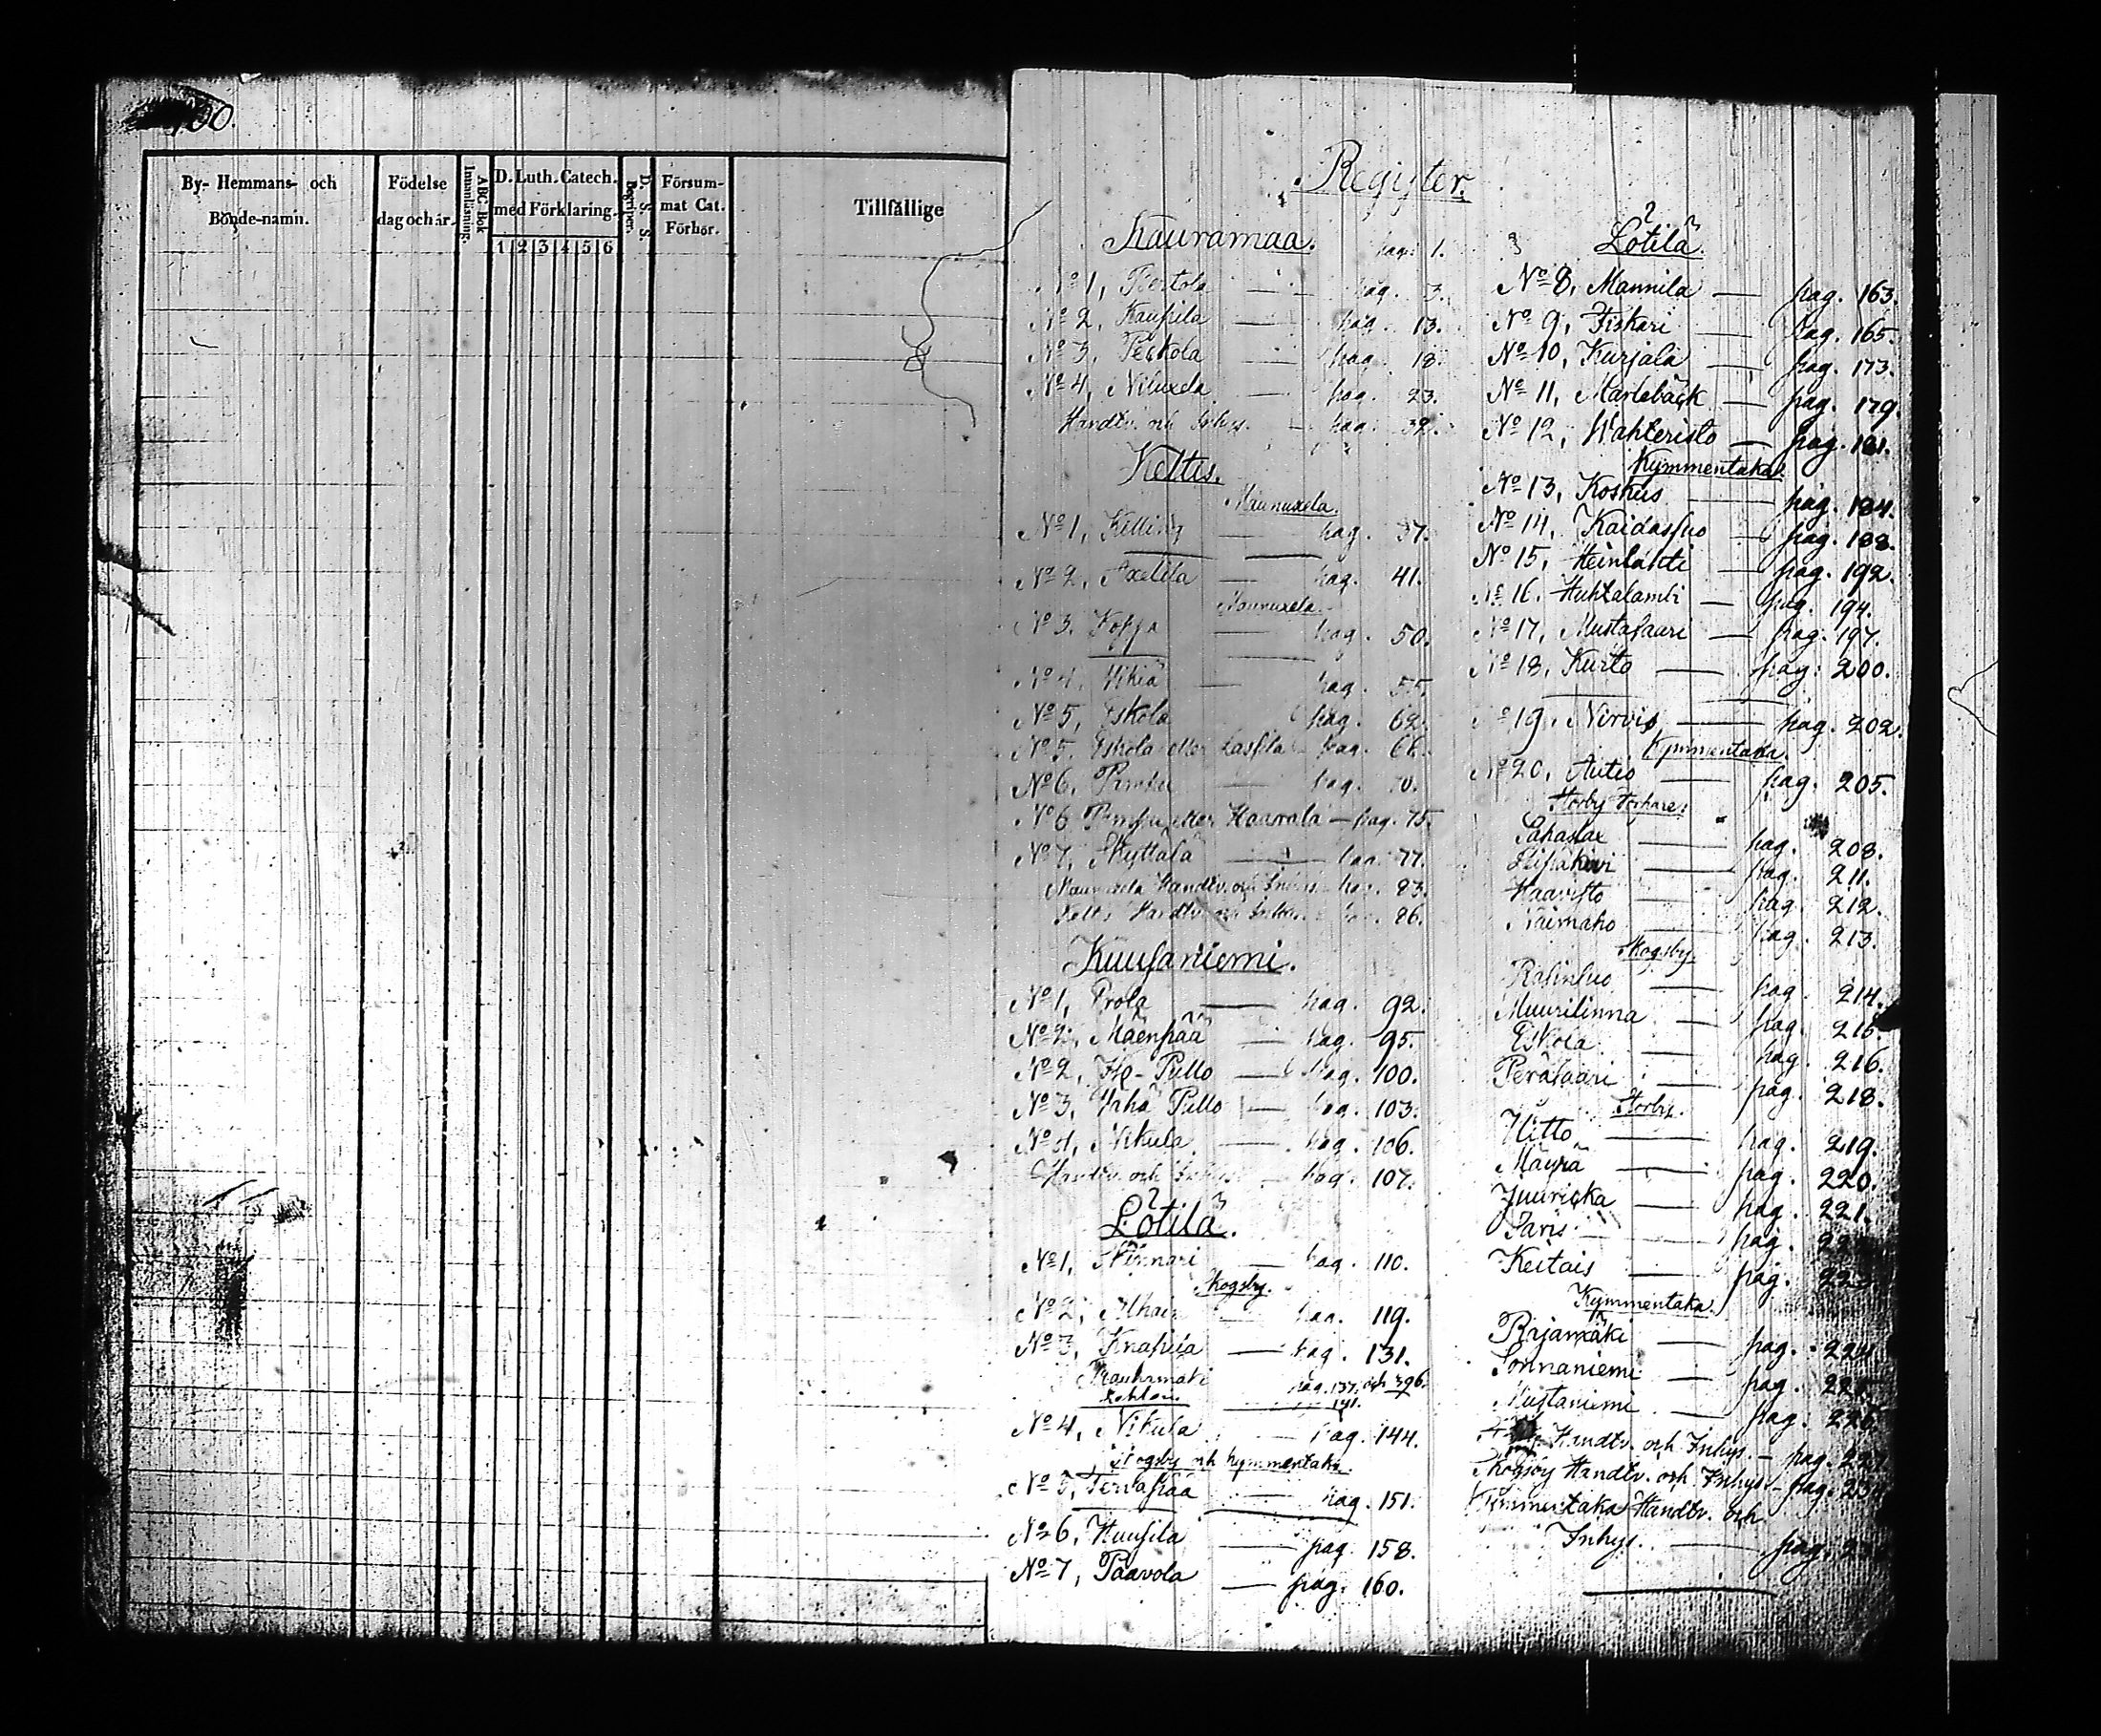 100.
By- Hemmans- och
Bonde-namn.
Födelse
dag och år.
ABC Bok
Innanläsning.
D. Luth. Catech.
med Förklaring.
1 2 3 4 5 6
D. S. S.
Begriper.
Försum-
mat Cat.
Förhör.
Tillfällige
Register.
Kauramaa. pag. 1.
No 1, Pertola — pag. 3.
No 2, Kaupila — pag. 13.
No 3, Peckola — pag. 18.
No 4, Niluxela — pag. 23.
Handtv. och Inhys. — pag. 32.
Keltis.
Maunuxela.
No 1, Kelling — pag. 37.
No 2, Axelila — pag. 41.
Maunuxela.
No 3, — pag. 50.
No 4, — pag. 55.
No 5, Eskola pag. 62.
No 5, Eskola eller — pag. 66.
No 6, — pag. 70.
No 6 eller Haavala — pag. 75.
No 7, Skyttälä — pag. 77.
Maunuxela Handtv. och Inhys. pag. 83.
Keltis Handtv. och Inhys. pag. 86.
Kuusaniemi.
No 1, Prola — pag. 92.
No 2, Mäenpää — pag. 95.
No 2, Pullo — pag. 100.
No 3, Pullo — pag. 103.
No 4, Nikula — pag. 106.
Handtv. och Inhys. — pag. 107.
Lotilä.
No 1, Kinnari — pag. 110.
Skogsby.
No 2, — pag. 119.
No 3, Knapila — pag. 131.
Rauhamäki pag. 137. och 396.
141.
No 4, Nikula — pag. 144.
Skogsby och Kymmentaka.
No 5, Tervapää — pag. 151.
No 6, Huusila — pag. 158.
No 7, Paavola — pag. 160.
Lotilä.
No 8, Mannila — pag. 163.
No 9, Fiskari — pag. 165.
No 10, Kurjala — pag. 173.
No 11, Marlebäck — pag. 179.
No 12, Wahteristo — pag. 181.
Kymmentaka.
No 13, Koskus — pag. 184.
No 14, Kaidassuo — pag. 188.
No 15, Heinlahti — pag. 192.
No 16, Huhtalambi — pag. 194.
No 17, Mustasaari — pag. 197.
No 18, Kurto — pag. 200.
No 19, Nirvis — pag. 202.
Kymmentaka
No 20, Autio — pag. 205.
Storby Torpare.
Sahaslax — pag. 208.
— pag. 211.
Haavisto — pag. 212.
Naimaho — pag. 213.
Skogsby.
— pag. 214.
Muurilinna — pag. 215.
Eskola — pag. 216.
Peräsaari — pag. 218.
Storby.
Hitto — pag. 219.
Mäyrä — pag. 220.
Juuricka — pag. 221.
Paris — pag.
Keitais — pag. 223
Kymmentaka.
Pirjamäki — pag. 224
Sonnaniemi — pag. 225
Mustaniemi — pag. 226
Handtv. och Inhys. — pag. 227
Skogsby Handtv. och Inhys. — pag.
Kymmentaka Handtv. och
Inhys. — pag.